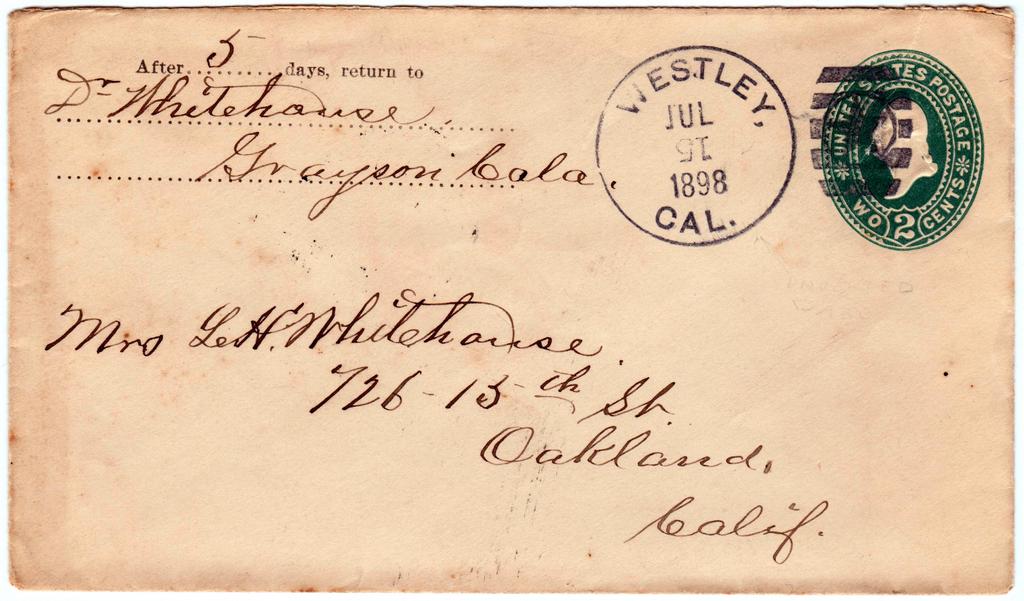 After 5 days, return to
Dr Whitehouse,
Grayson Cala.
WESTLEY,
JUL
15
1898
CAL.
UNITED STATES POSTAGE
TWO 2 CENTS
Mrs L.H. Whitehouse.
726-15th St.
Oakland,
Calif.
INVERTED